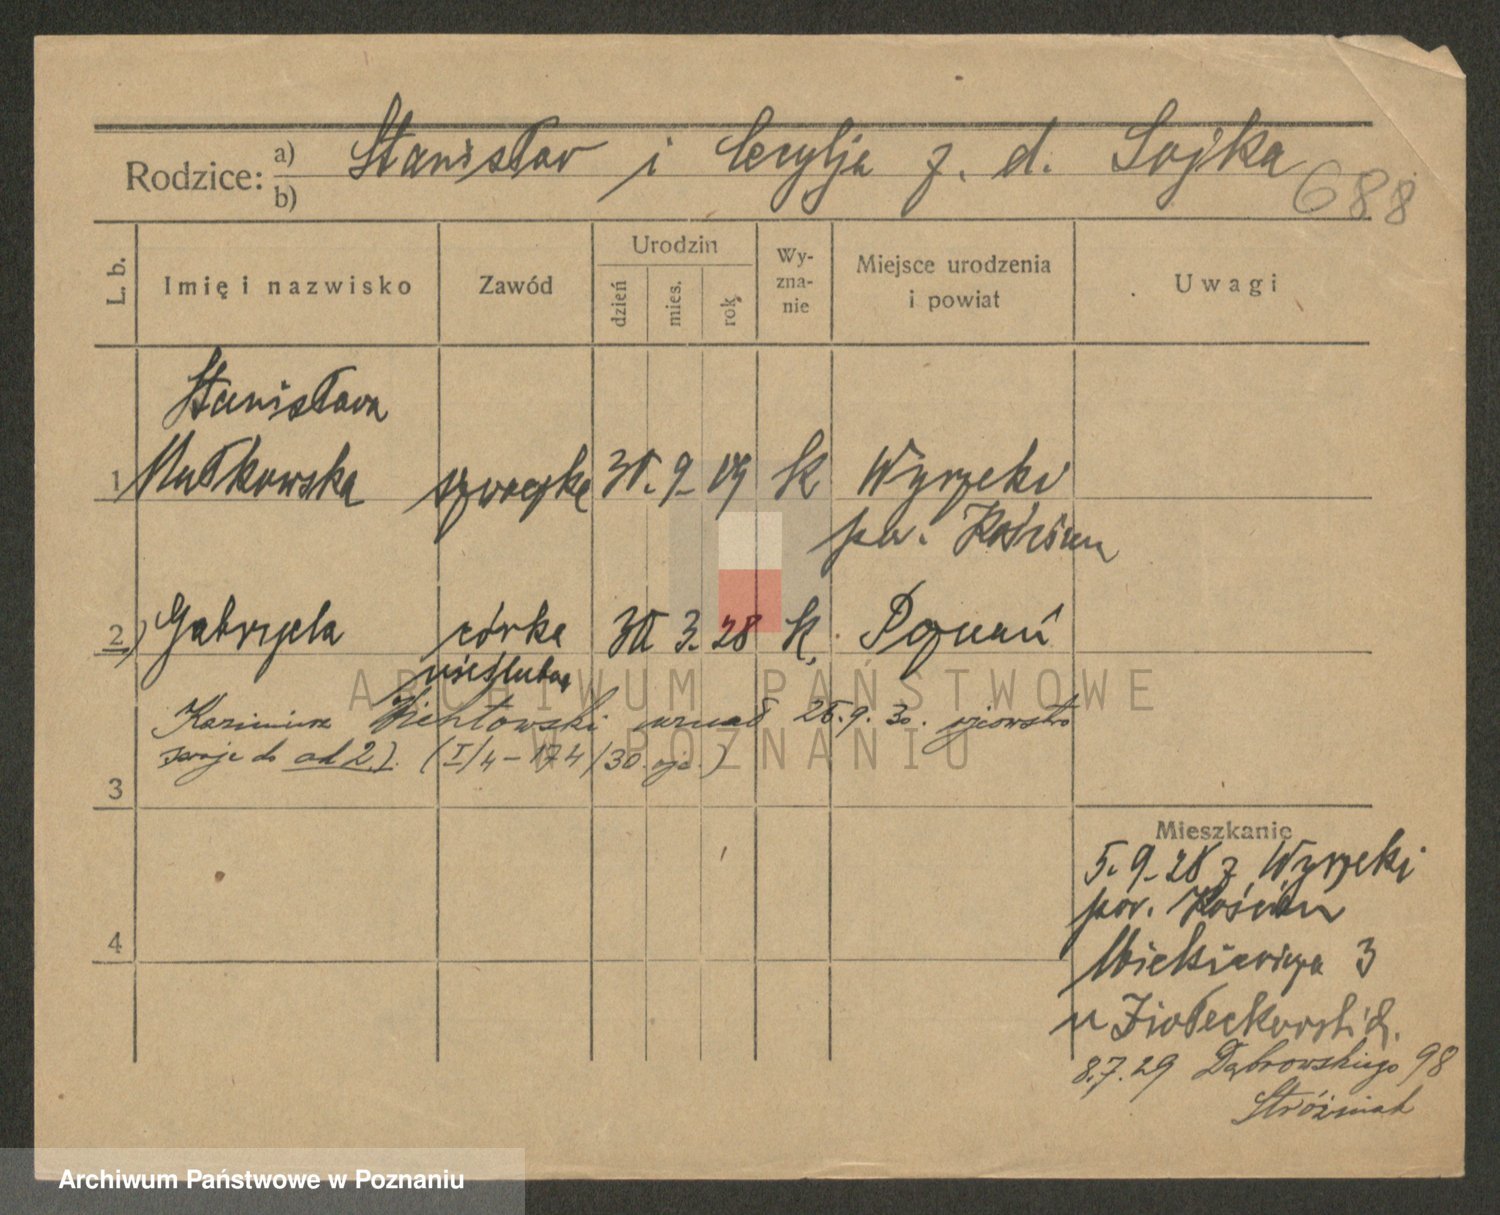 Rodzice: a) Stanisław i Cecylja z. d. Sojka
b)
688
L. b. Imię i nazwisko Zawód Urodzin dzień mies. rok Wy-zna-nie Miejsce urodzenia i powiat Uwagi
Stanisława
1 Małkowska szwaczka 30. 9. 09 k Wyrzeki
pow. Kościan
2) Gabryela córka 30 3. 28 k. Poznań
nieślubna
Kazimierz uznał 26. 9. 30. ojcowstwo
swoje do ad 2). (I/4 - 174/30 )
3
4
Mieszkanie
5. 9. 28 z Wyrzeki
pow. Kościan
Mickiewicza 3
u Ziołeckowskich.
8.7.29 Dąbrowskiego 98
Stróżniak
ARCHIWUM PAŃSTWOWE
W POZNANIU
Archiwum Państwowe w Poznaniu